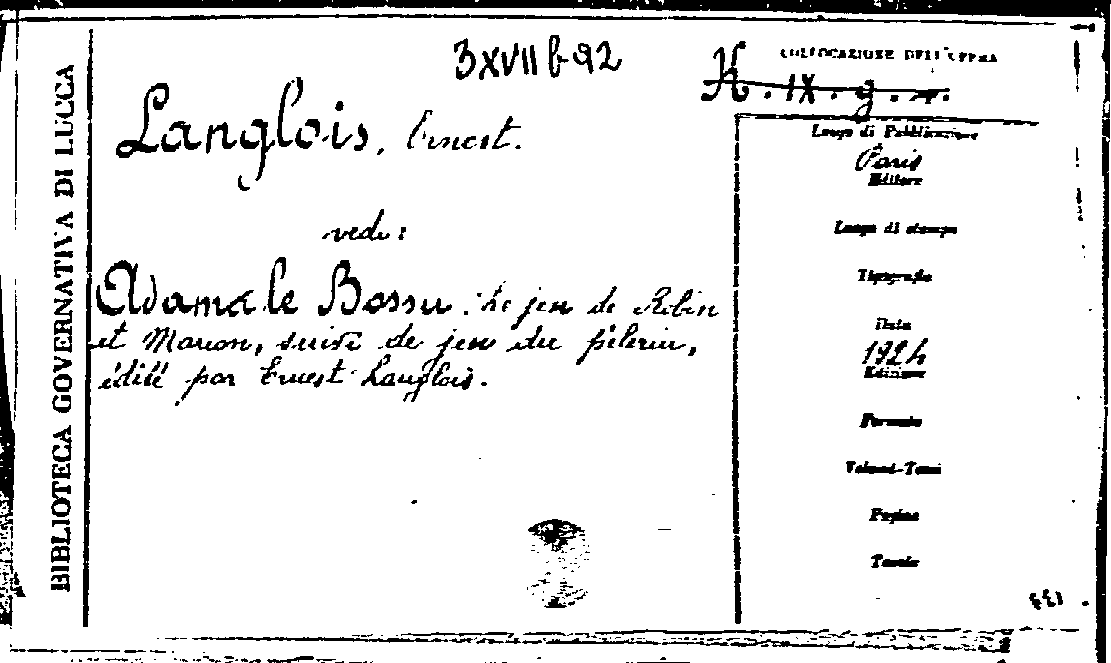 BIBLIOTECA GOVERNATIVA DI LUCCA
3 XVII b 92
COLLOCAZIONE DELL'OPERA
H. IX. g.
Langlois, Ernest.
vedi:
Adam le Bossu. Le jeu de Robin
et Marion, suivi de jeu du pélerin,
édité par Ernest Langlois.
Luogo di Pubblicazione
Paris
Editore
Luogo di stampa
Tipografia
Data
1924
Edizione
Formato
Volumi-Tomi
Pagine
Tavole